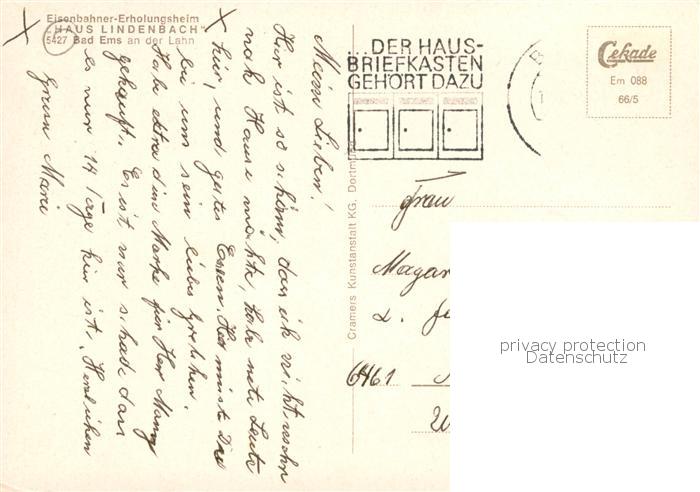 Eisenbahner-Erholungsheim
„HAUS LINDENBACH"
5427 Bad Ems an der Lahn
Meine Lieben!
Hier ist es schön, das ich nicht mehr
nach Hause möchte, habe nete Leute
hier, und gutes Essen. Hed miste Du
bei uns sein liebes Gretchen.
Habe extra die Marke für Her Mann
gekauft. Es ist nur schade das
es nur 14 Tage hier ist. Herzlichen
Gruss Marie
...DER HAUS-
BRIEFKASTEN
GEHÖRT DAZU
Cekade
Em 088
66/5
Cramers Kunstanstalt KG. Dortmund
Frau
Magar
6461
privacy protection
Datenschutz